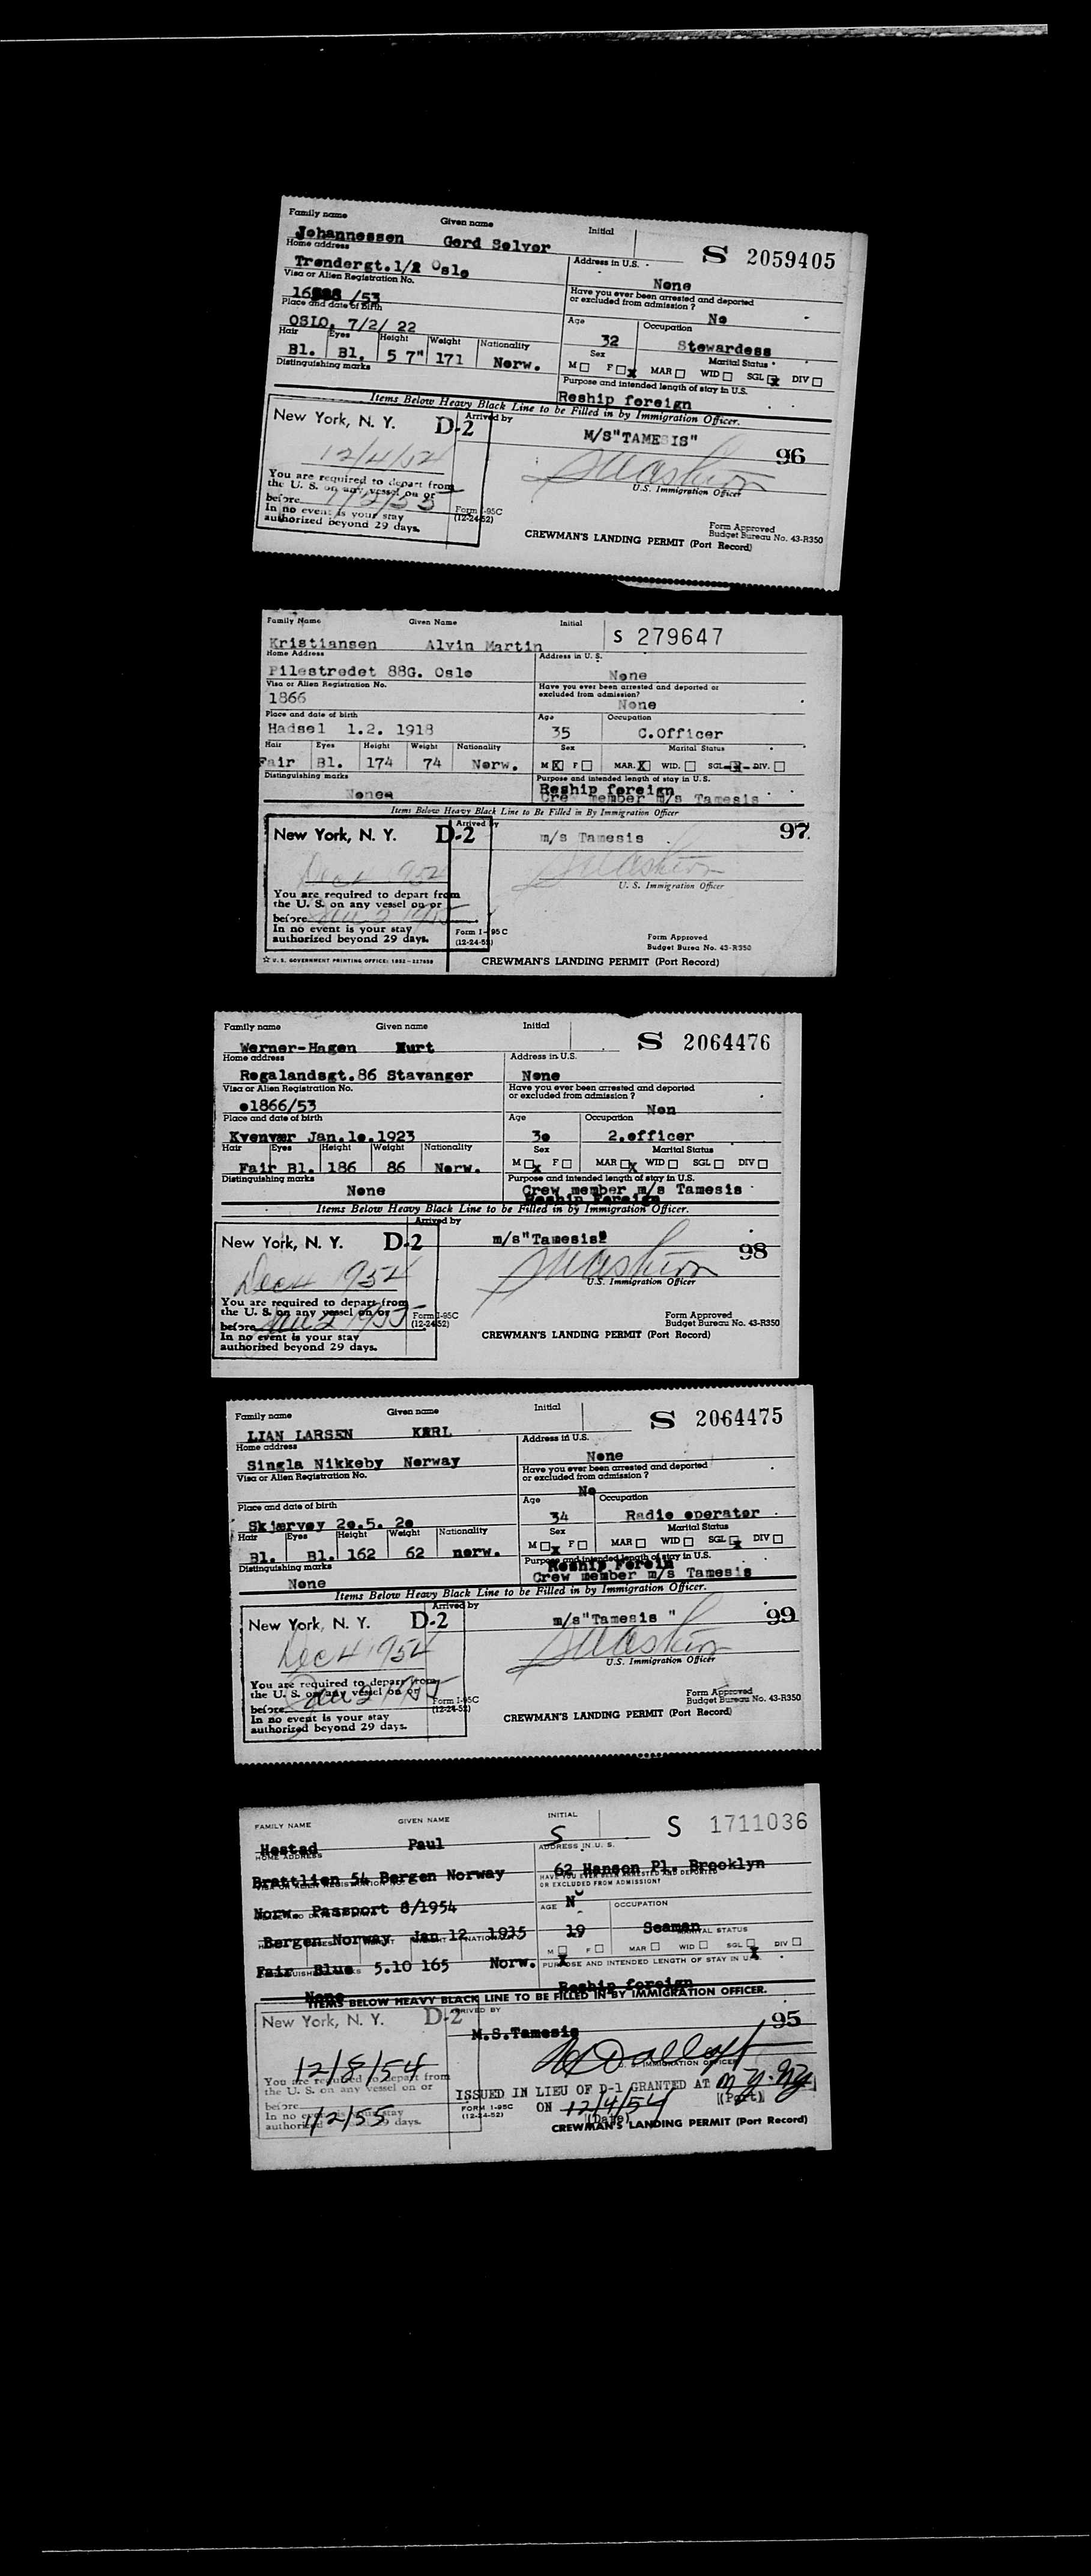 Family name Given name Initial
Johannessen Gerd Selver S 2059405
Home address Address in U.S.
Trøndergt.1/2 Oslo None
Visa or Alien Registration No. Have you ever been arrested and deported or excluded from admission?
/53 No
Place and date of birth Age Occupation
OSLO, 7/2/ 22 32 Stewardess
Hair Eyes Height Weight Nationality Sex Marital Status
Bl. Bl. 5 7" 171 Norw. M F x MAR WID SGL x DIV
Distinguishing marks Purpose and intended length of stay in U.S.
Reship foreign
Items Below Heavy Black Line to be Filled in by Immigration Officer.
New York, N. Y. D-2 Arrived by M/S"TAMESIS" 96
12/4/54
You are required to depart from
the U. S. on any vessel on or
before 1/2/55
In no event is your stay
authorized beyond 29 days.
U.S. Immigration Officer
Form I-95C
(12-24-52)
Form Approved
Budget Bureau No. 43-R350
CREWMAN'S LANDING PERMIT (Port Record)
Family Name Given Name Initial
Kristiansen Alvin Martin S 279647
Home Address Address in U. S.
Pilestredet 88G. Oslo None
Visa or Alien Registration No. Have you ever been arrested and deported or excluded from admission?
1866 None
Place and date of birth Age Occupation
Hadsel 1.2. 1918 35 C.Officer
Hair Eyes Height Weight Nationality Sex Marital Status
Fair Bl. 174 74 Norw. M X F MAR. X WID. SGL. DIV.
Distinguishing marks Purpose and intended length of stay in U.S.
None Reship foreign
Crew member m/s Tamesis
Items Below Heavy Black Line to Be Filled in By Immigration Officer
New York, N. Y. D-2 Arrived by m/s Tamesis 97
Dec 4 1954
You are required to depart from
the U. S. on any vessel on or
before Jan 2 1955
In no event is your stay
authorized beyond 29 days.
U. S. Immigration Officer
Form I-95C
(12-24-52)
Form Approved
Budget Bureau No. 43-R350
U. S. GOVERNMENT PRINTING OFFICE: 1952
CREWMAN'S LANDING PERMIT (Port Record)
Family name Given name Initial
Werner-Hagen Kurt S 2064476
Home address Address in U.S.
Rogalandsgt.86 Stavanger None
Visa or Alien Registration No. Have you ever been arrested and deported or excluded from admission?
o1866/53 Non
Place and date of birth Age Occupation
Kvenvær Jan.1o.1923 3o 2.officer
Hair Eyes Height Weight Nationality Sex Marital Status
Fair Bl. 186 86 Norw. M x F MAR x WID SGL DIV
Distinguishing marks Purpose and intended length of stay in U.S.
None Crew member m/s Tamesis
Reship Foreign
Items Below Heavy Black Line to be Filled in by Immigration Officer.
New York, N. Y. D-2 Arrived by m/s"Tamesis" 98
Dec 4 1954
You are required to depart from
the U. S. on any vessel on or
before Jan 2 1955
In no event is your stay
authorized beyond 29 days.
U.S. Immigration Officer
Form I-95C
(12-24-52)
Form Approved
Budget Bureau No. 43-R350
CREWMAN'S LANDING PERMIT (Port Record)
Family name Given name Initial
LIAN LARSEN KARL S 2064475
Home address Address in U.S.
Singla Nikkeby Norway None
Visa or Alien Registration No. Have you ever been arrested and deported or excluded from admission?
No
Place and date of birth Age Occupation
Skjærvøy 2o.5. 2o 34 Radio operator
Hair Eyes Height Weight Nationality Sex Marital Status
Bl. Bl. 162 62 norw. M x F MAR WID SGL x DIV
Distinguishing marks Purpose and intended length of stay in U.S.
None Reship Forein
Crew member m/s Tamesis
Items Below Heavy Black Line to be Filled in by Immigration Officer.
New York, N. Y. D-2 Arrived by m/s"Tamesis " 99
Dec 4 1954
You are required to depart from
the U. S. on any vessel on or
before Jan 2 1955
In no event is your stay
authorized beyond 29 days.
U.S. Immigration Officer
Form I-95C
(12-24-52)
Form Approved
Budget Bureau No. 43-R350
CREWMAN'S LANDING PERMIT (Port Record)
FAMILY NAME GIVEN NAME INITIAL
Hestad Paul S S 1711036
HOME ADDRESS ADDRESS IN U. S.
Brattlien 54 Bergen Norway 62 Hanson Pl. Brooklyn
HAVE YOU EVER BEEN ARRESTED AND DEPORTED OR EXCLUDED FROM ADMISSION?
Norw. Passport 8/1954 No
AGE OCCUPATION
Bergen Norway Jan 12 1935 19 Seaman
MARITAL STATUS
Fair Blue 5.10 165 Norw. M X F MAR WID SGL X DIV
PURPOSE AND INTENDED LENGTH OF STAY IN U.S.
None Reship foreign
ITEMS BELOW HEAVY BLACK LINE TO BE FILLED IN BY IMMIGRATION OFFICER.
New York, N. Y. D-2 ARRIVED BY M.S.Tamesis 95
12/8/54
You are required to depart from
the U. S. on any vessel on or
before 1/2/55
In no event is your stay
authorized days.
IMMIGRATION OFFICER
ISSUED IN LIEU OF D-1 GRANTED AT N.Y. NY
(Port)
ON 12/4/54
(Date)
FORM I-95C
(12-24-52)
CREWMAN'S LANDING PERMIT (Port Record)